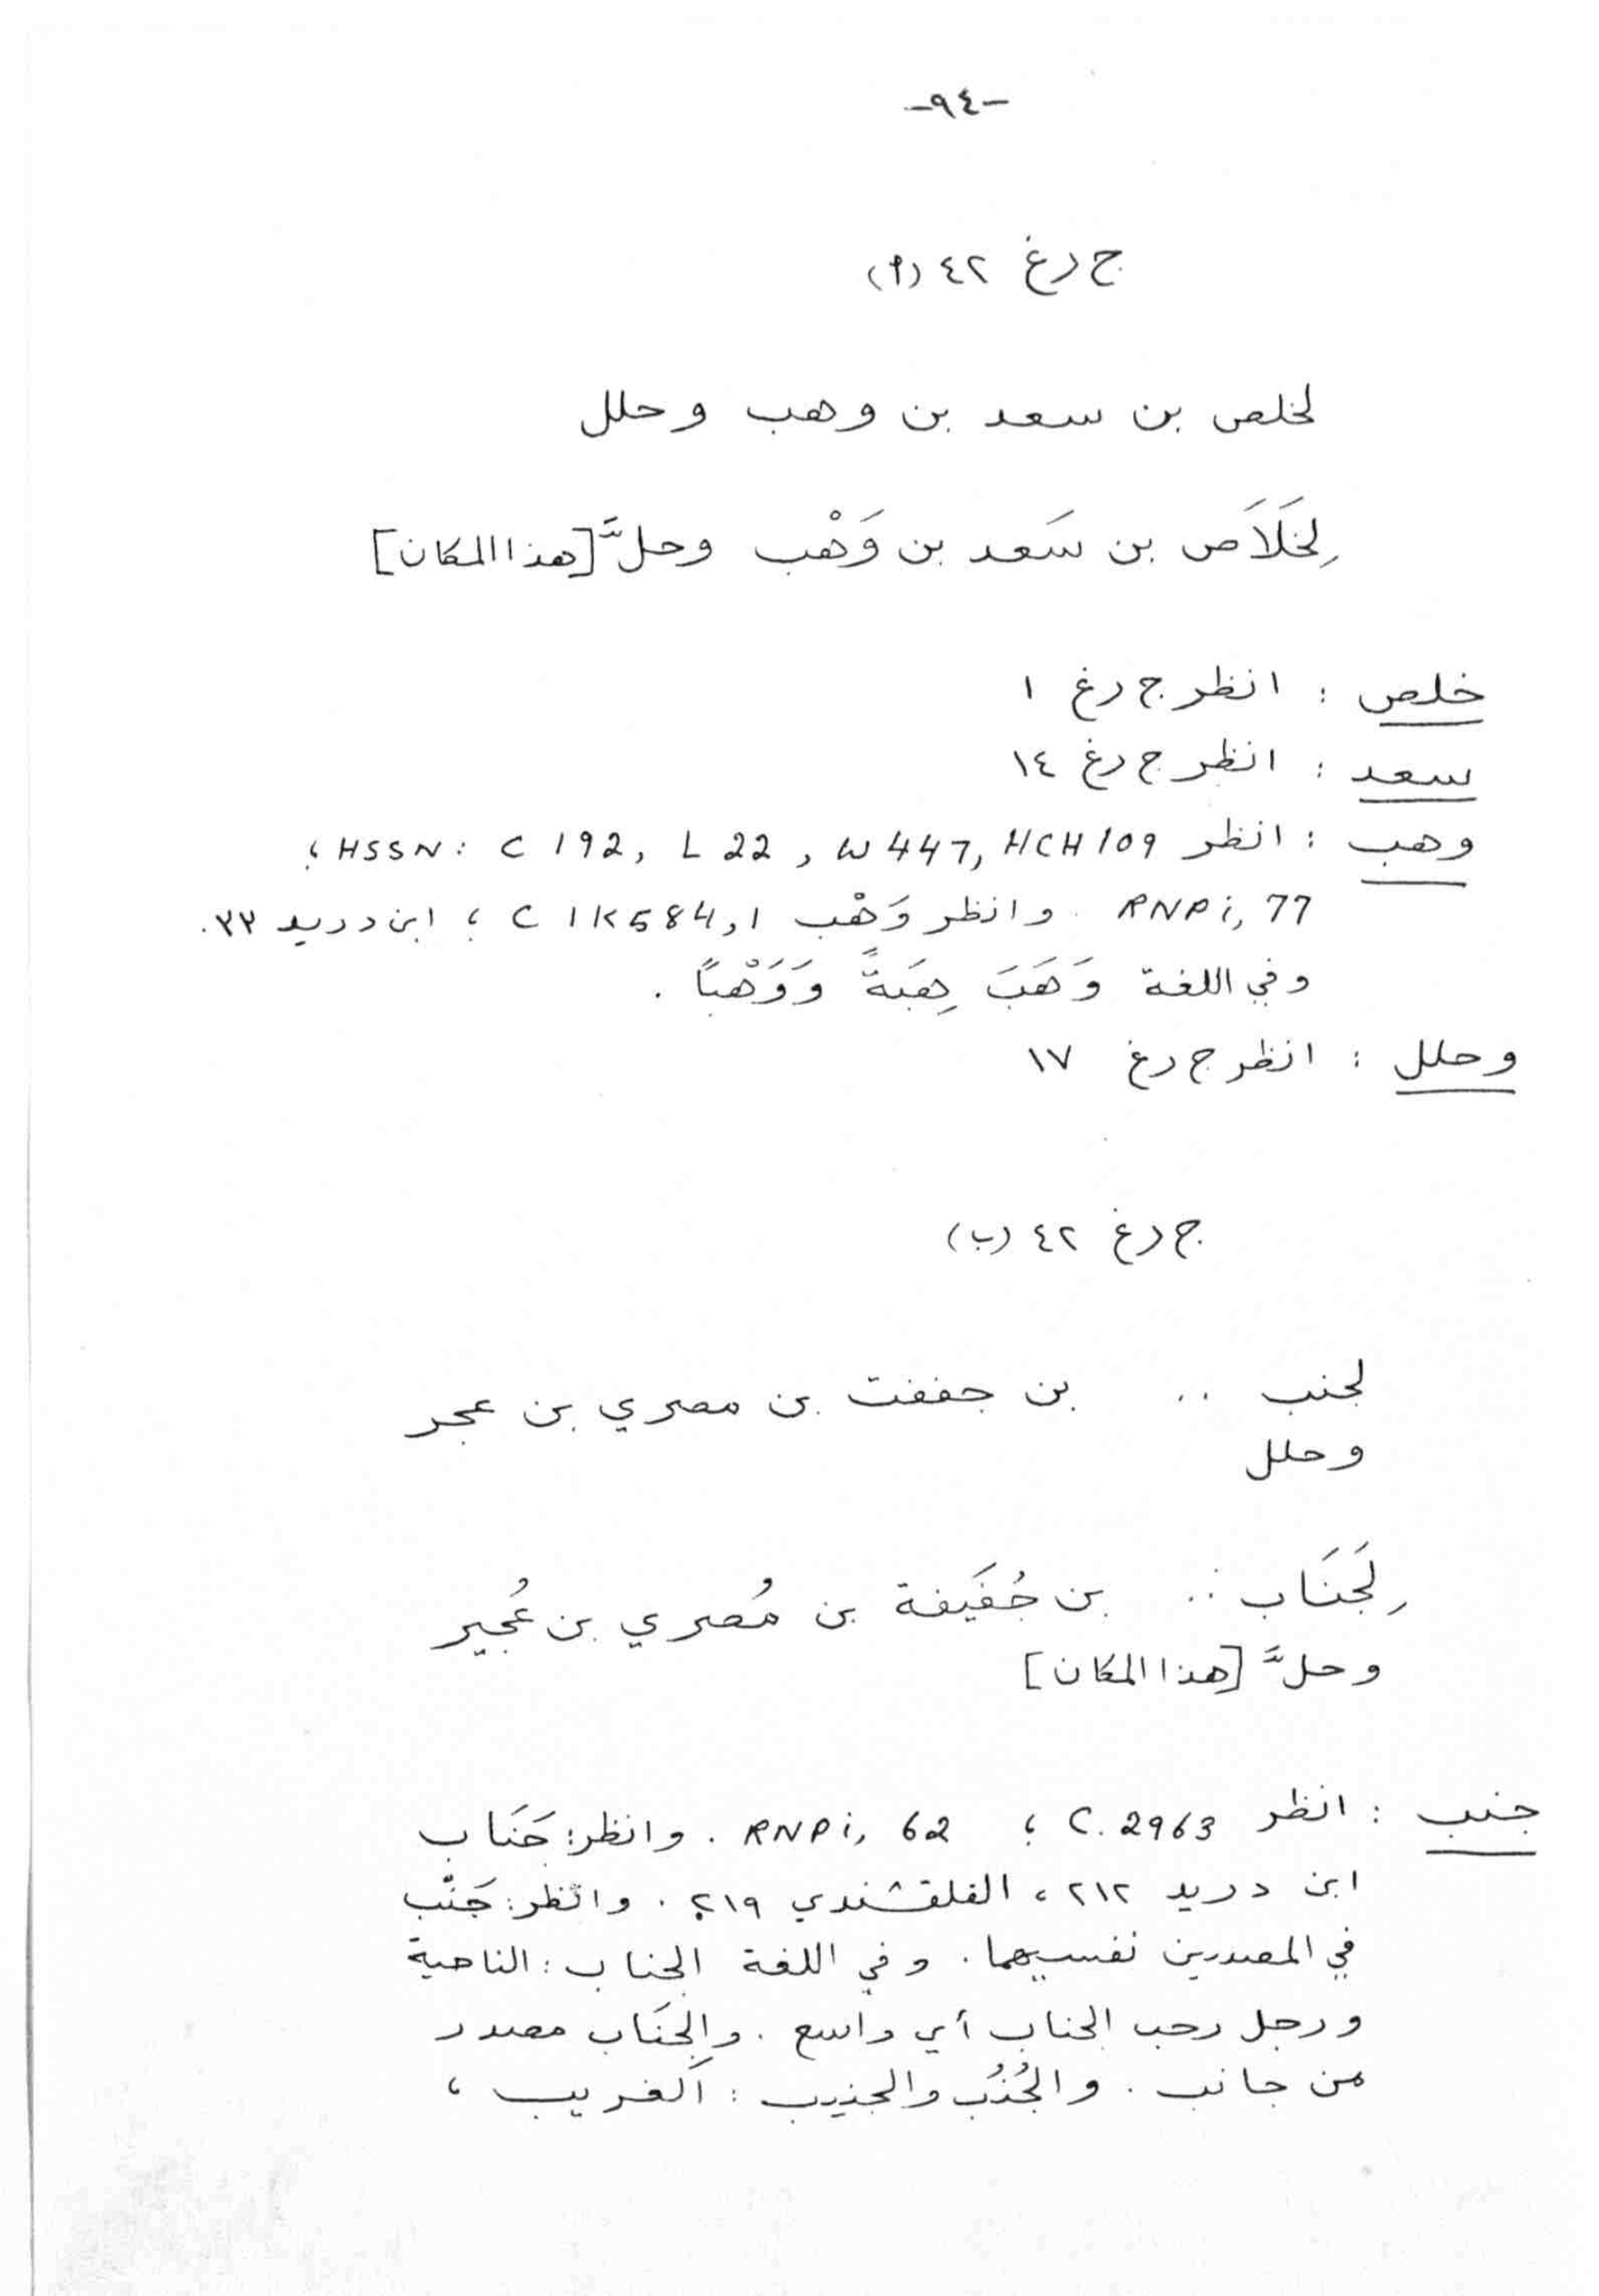 -٩٤-
ج رغ ٤٢ (أ)
لخلص بن سعد بن وهب وحلل
لِخَلَاَص بن سَعد بن وَهْب وحلَّ [هذا المكان]
خلص : انظر ج رغ ١
سعد : انظر ج رغ ١٤
وهب : انظر HSSN: C 192, L 22, W 447, HCH 109 ؛
RNP i, 77 . وانظر وَهْب C IK 584,1 ؛ ابن دريد ٣٣.
وفي اللغة وَهَبَ هِبَةً وَوَهْبًا .
وحلل : انظر ج رغ ١٧
ج رغ ٤٢ (ب)
لجنب .. بن جففت بن مصري بن عجر
وحلل
لِجَنَاب .. بن جُفَيفة بن مُصري بن عُجير
وحلَّ [هذا المكان]
جنب : انظر C. 2963 ؛ RNP i, 62 . وانظر: جَنَاب
ابن دريد ٢١٢ ، القلقشندي ٢١٩ . وانظر: جَنْب
في المصدرين نفسيهما . وفي اللغة الجناب : الناحية
ورجل رحب الجناب أي واسع . والجِنَاب مصدر
من جانب . والجُنُب والجنيب : الغريب ،